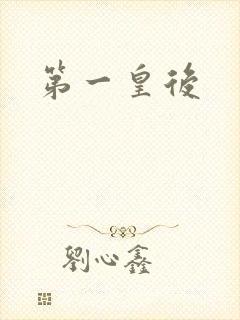 第一皇後
劉心鑫